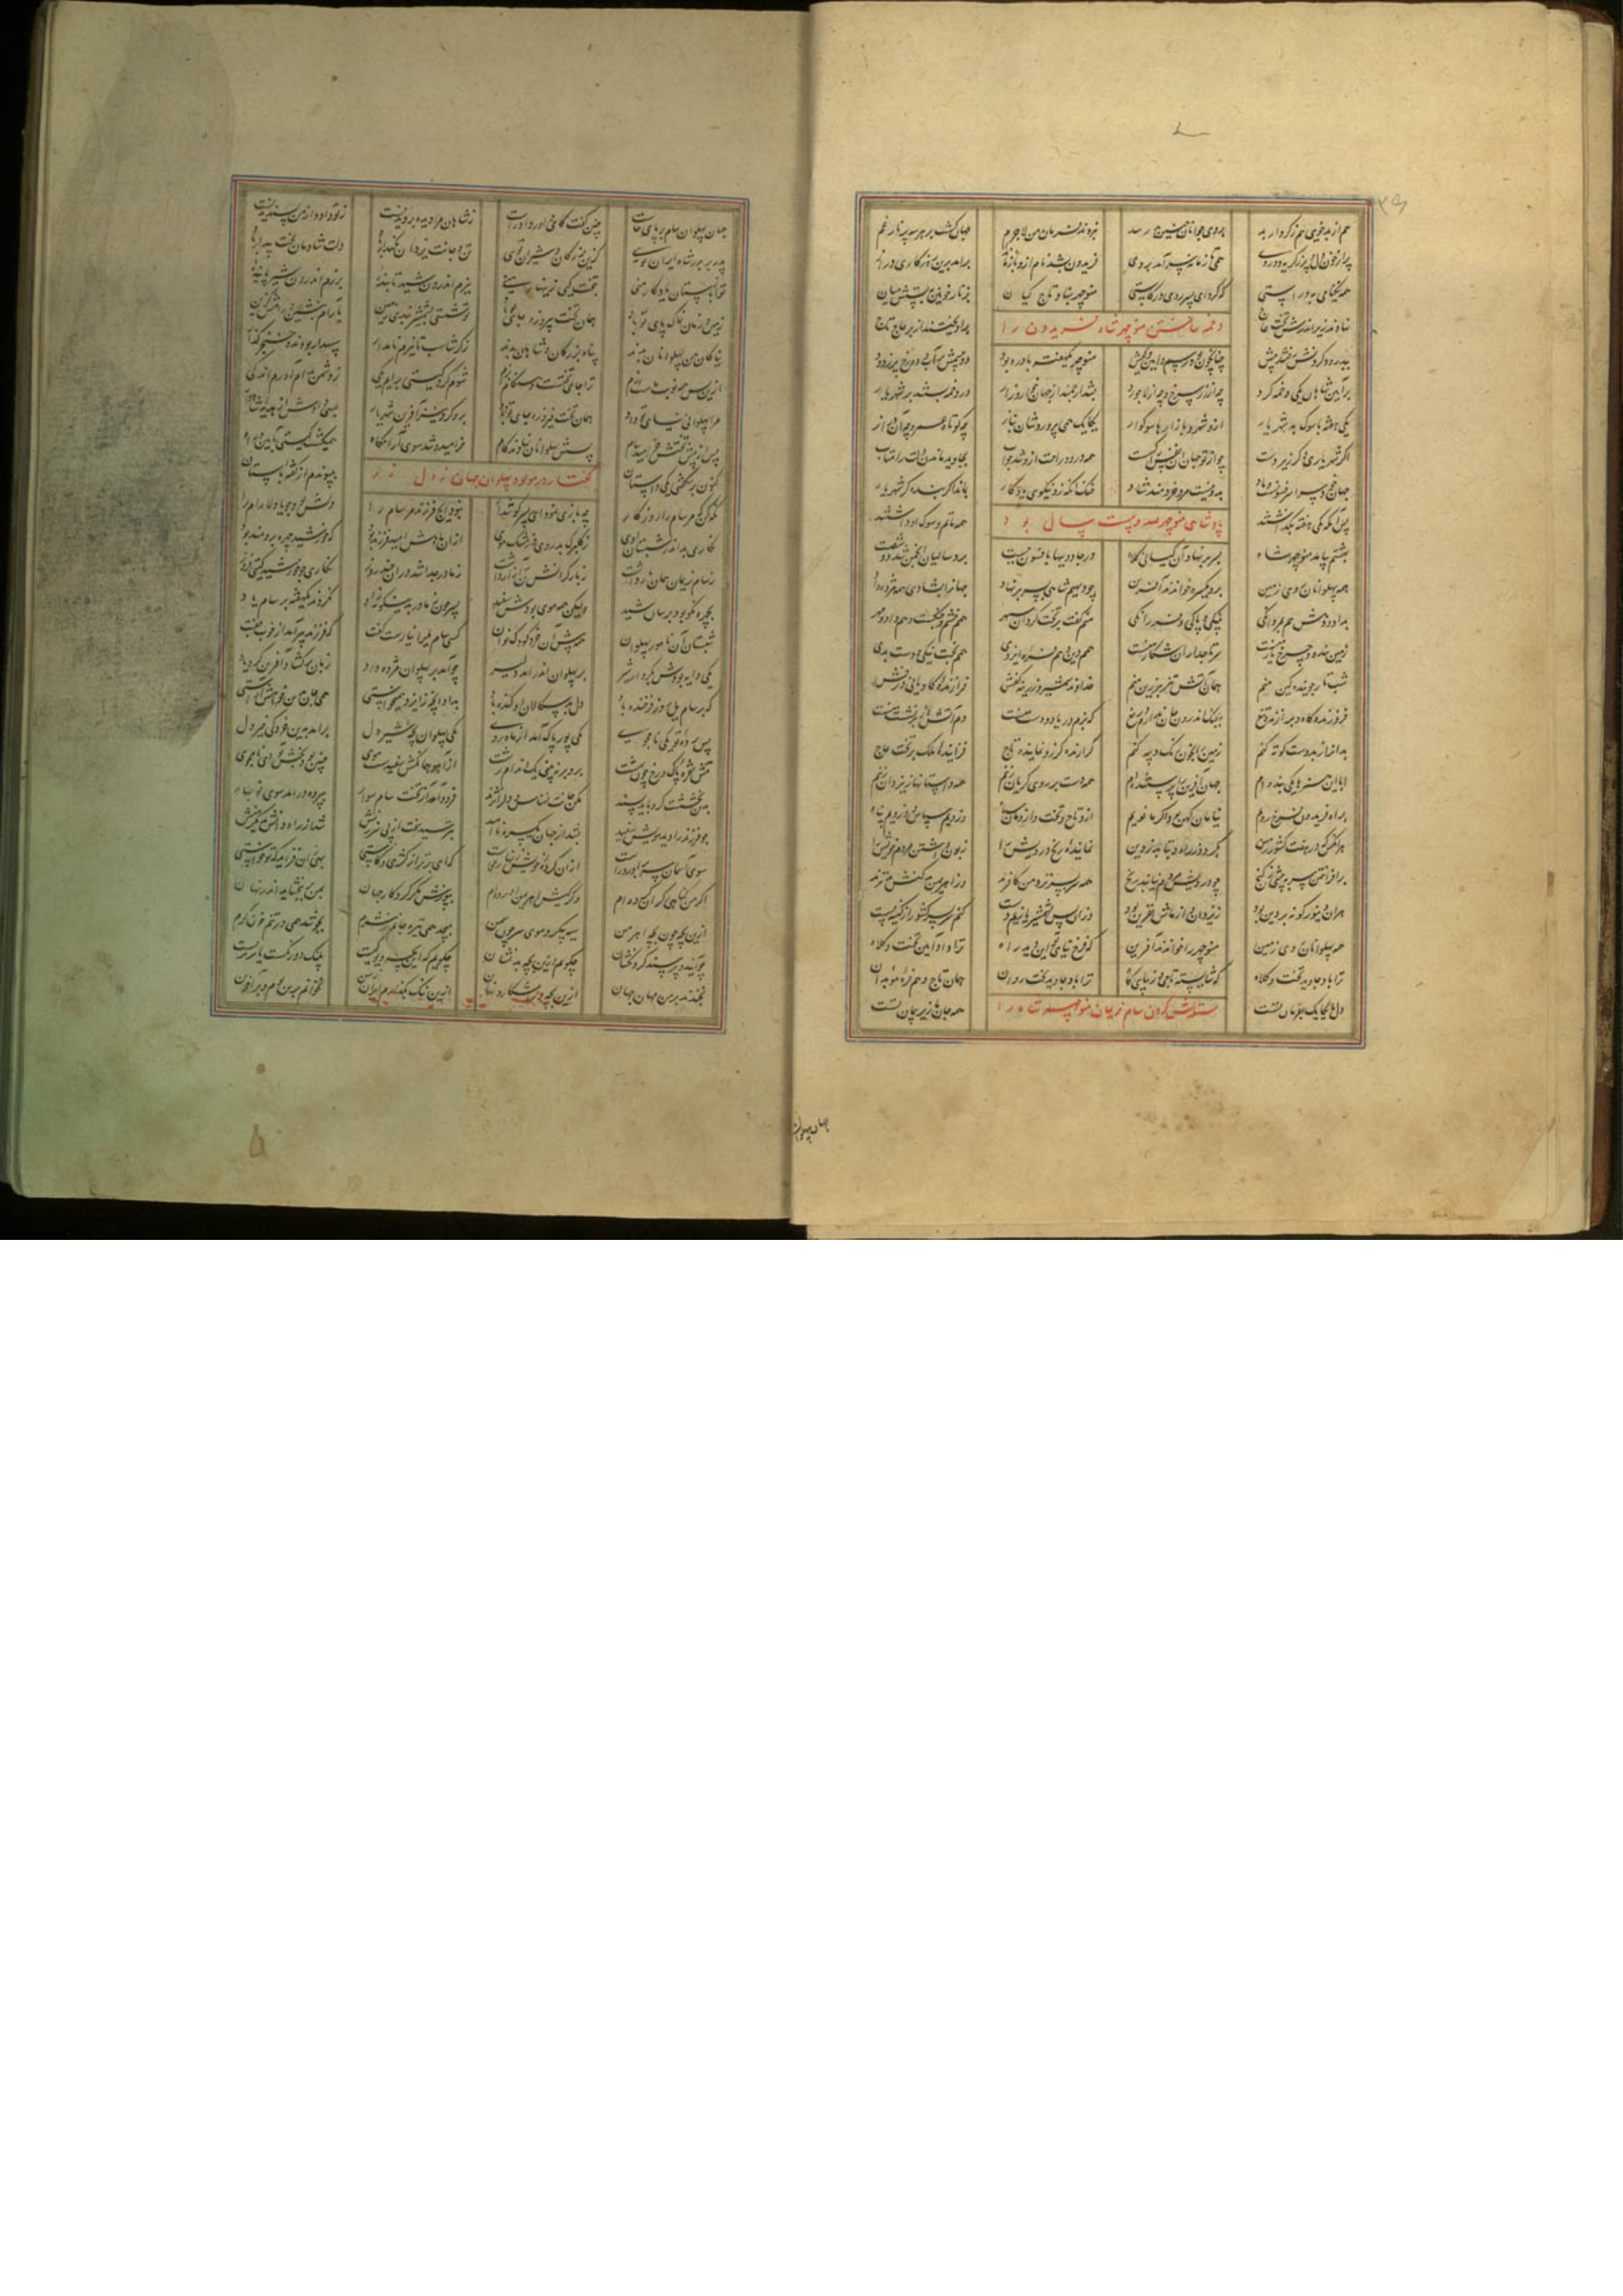 هم از بدخویی هم ز کردار بد بروی جوانان چنین بد رسد نبردند فرمان من لاجرم جهان کشت بر هر سه
پر از خون دل و پر ز کریه دو روی همی تا زمانه سر آمد بروی فریدون شد نام ازو ماند باز برآمد برین روزکاری دراز
همه نیکنامی به و راستی که کرد ای پسر سود در کاستی منوچهر بنهاد تاج کیان بزنار خونین ببستش میان
دخمه ساختن منوچهر شاه فریدون را
نهادند زیر اندرش تخت عاج بیاویختند از بر عاج تاج
بپدرود کردنش رفتند پیش چنانچون بود رسم و آیین و کیش منوچهر یکهفته با درد بود دو چشمش پر آب و دو رخ پر ز زرد
برآیین شاهان یکی دخمه کرد چه از زر سرخ و چه از لاجورد بشد ارجمند از جهان خوار زار در دخمه بستند بر شهریار
یکی هفته با سوک بد شهریار ازو شهر و بازارها سوکوار یکایک همی پروریشان بناز چه کوتاه عمر و چه آن دراز
اکر شهریاری و کر زیردست چو از تو جهان این نفس را کسست همه درد و راحت ازو شد چو آب بجاوید ماندن دلت را متاب
جهان سراسر فسونست و باد بدو نیست مرد خردمند شاد خنک آنکه زو نیکوی یادکار بماند اکر بنده کر شهریار
پادشاهی منوچهر صد و بیست سال بود
پس آنکه یکی هفته بکذاشتند همه ماتم و سوک او داشتند
بهشتم بیامد منوچهر شاه بسر بر نهاد آن کیانی کلاه در جادویها بافسون ببست برو سالیان انجمن شد دو شصت
همه پهلوانان روی زمین برو یکسره خواندند آفرین چو دیهیم شاهی بسر بر نهاد جهانرا بشادی همه مژده داد
بداد و دهش هم بمردانکی بنیکی و پاکی و فرزانکی منم کفت بر تخت کردان سپهر همم خشم و جنکست و هم داد و مهر
زمین بنده و چرخ یار منست سر تاجداران شکار منست همم دین و هم فره ایزدی همم بخت نیکی و دست بدی
شب تار جوینده کین منم همان آتش تیز برزین منم خداوند شمشیر و زرینه کفش فرازنده کاویانی درفش
فروزنده تیغ بجنک اندرون جان ندارم دریغ که بزم دریا دو دست منست دم آتش از برنشست منست
بدانرا ز بد دست کوته کنم زمین را بخون رنک دیبه کنم کراینده کرز و نماینده تاج فزاینده ملک بر تخت عاج
ابا این هنرها یکی بنده ام جهان آفرین را پرستنده ام همه دست بر روی کریان زنیم همه داستانها ز یزدان زنیم
براه فریدون فرخ رویم نیامان کهن بود اکر ما نویم ازو تاج و تخت و ازومان سپاه وزویم سپاس و بدویم پناه
هر آنکس که در هفت کشور زمین بکردد ز راه و بتابد ز دین نماینده رنج درویش را زبون داشتن مردم خویش را
برافراختن سر به بیشی و کنج بدرویش مردم نماینده رنج همه سر بسر نزد من کافرند وز اهرمن بدکنش بدترند
هر آن دینور کو نه بر دین بود ز یزدان و از ماش نفرین بود وزان پس بشمشیر یازیم دست کنم سر بسر کشور از کینه پست
همه پهلوانان روی زمین منوچهر را خواندند آفرین که فرخ نیای تو این دید راه ترا داد آیین تخت و کلاه
ترا باد جاوید تخت و کلاه که شایسته تاجی و زیبای کاه ترا باد جاوید تخت روان همان تاج و هم فره موبدان
ستایش کردن سام نریمان منوچهر شاه را
دل ما یکایک بفرمان تست همه جان ما زیر پیمان تست
جهان پهلوان
جهان پهلوان سام بر پای خاست چنین کفت کای داور داد راست ز شاهان مرا دیده بر دیدنست ز تو داد و از من پسندیدنست
پدر بر پدر شاه ایران تویی کزین بزرکان و شیران تویی تن و جانت یزدان نکهدار باد دلت شادمان بخت بیدار باد
تو از باستان یادکار منی بتخت کیی زینهار منی ببزم اندرون شید تابنده برزم اندرون شیر پاینده
زمین و زمان خاک پای تو باد همان تخت پیروزه جای تو باد تو شستی بشمشیر هندی زمین بآرام بنشین و رامش کزین
نیاکان من پهلوانان بدند پناه بزرکان و شاهان بدند ز کرشاسب تا نیرم نامدار سپهدار بودند و خنجرکذار
ازین پس همه نوبت ماست رزم ترا جای تختست و بزم شوم کرد کیتی برایم یکی ز دشمن بدام آورم اندکی
مرا پهلوانی نیای تو داد برو کرد بسیار آفرین شهریار
پس از پیش تختش خرامید سام پسش پهلوانان نهادند کام خرامید و شد سوی آرامکاه همی کشت کیتی بآیین و راه
کفتار در مولود پهلوان جهان زال زر
کنون پر شکفتی یکی داستان بپیوندم از کفته باستان
نکه کن که مر سام را روزکار چه بازی نمود ای پسر کوش دار نبود ایچ فرزند مر سام را دلش بود جویا دلارام را
نکاری بد اندر شبستان اوی ز کلبرک رخ داشت و ز مشک موی از آن ماهش امید فرزند بود که خورشید چهر و برومند بود
ز سام نریمان همان بار داشت ز بار کران تنش آزار داشت ز مادر جدا شد در آن چند روز نکاری چو خورشید کیتی فروز
بچهره نکو بود بر سان شید ولیکن همه موی بودش سفید پسر چون ز مادر برین کونه زاد نکردند یکهفته بر سام یاد
شبستان آن نامور پهلوان همه پیش آن خرد کودک نوان کسی سام یل را نیارست کفت که فرزند پیر آمد از خوب جفت
یکی دایه بودش بکردار شیر بر پهلوان اندر آمد دلیر چو آمد بر پهلوان مژده داد زبان برکشاد آفرین کرد یاد
که بر سام یل روز فرخنده باد دل بدسکالان او کنده باد بداد آنچه از ایزد همی خواستی
پس پرده تو یکی پور پاک آمد از ماه روی یکی پهلوان بچه شیردل
تنش نقره پاک و رخ چون بهشت برو بر نبینی یک اندام زشت از آهو همان کش سفیدست موی چنین بود بخشش تو ای نامجوی
فرود آمد از تخت سام سوار بپرده درآمد سوی نوبهار
چو فرزند را دید مویش سفید ببود از جهان یکسره ناامید بترسید سخت از پی سرزنش شد از راه دانش بدیکر منش
سوی آسمان سر برآورد راست از آن کرده خویش زنهار خواست که ای برتر از کژی و کاستی بهی زان فزاید که تو خواستی
اکر من کناهی کران کرده ام وکر کیش اهرمن آورده ام بپوزش مکر کردکار جهان بمن بر ببخشاید اندر نهان
ازین بچه چون بچه اهرمن سیه پیکر و موی سر چون سمن بپیچد همی تیره جانم ز شرم بجوشد همی در تنم خون کرم
چو آیند و پرسند کردنکشان چکویم ازین بچه بد نشان چکویم که این بچه دیو کیست پلنک دو رنکست یا پریست
بخندند بر من مهان جهان ازین بچه در آشکار و نهان ازین ننک بکذارم ایران زمین نخوانم برین بوم و بر آفرین